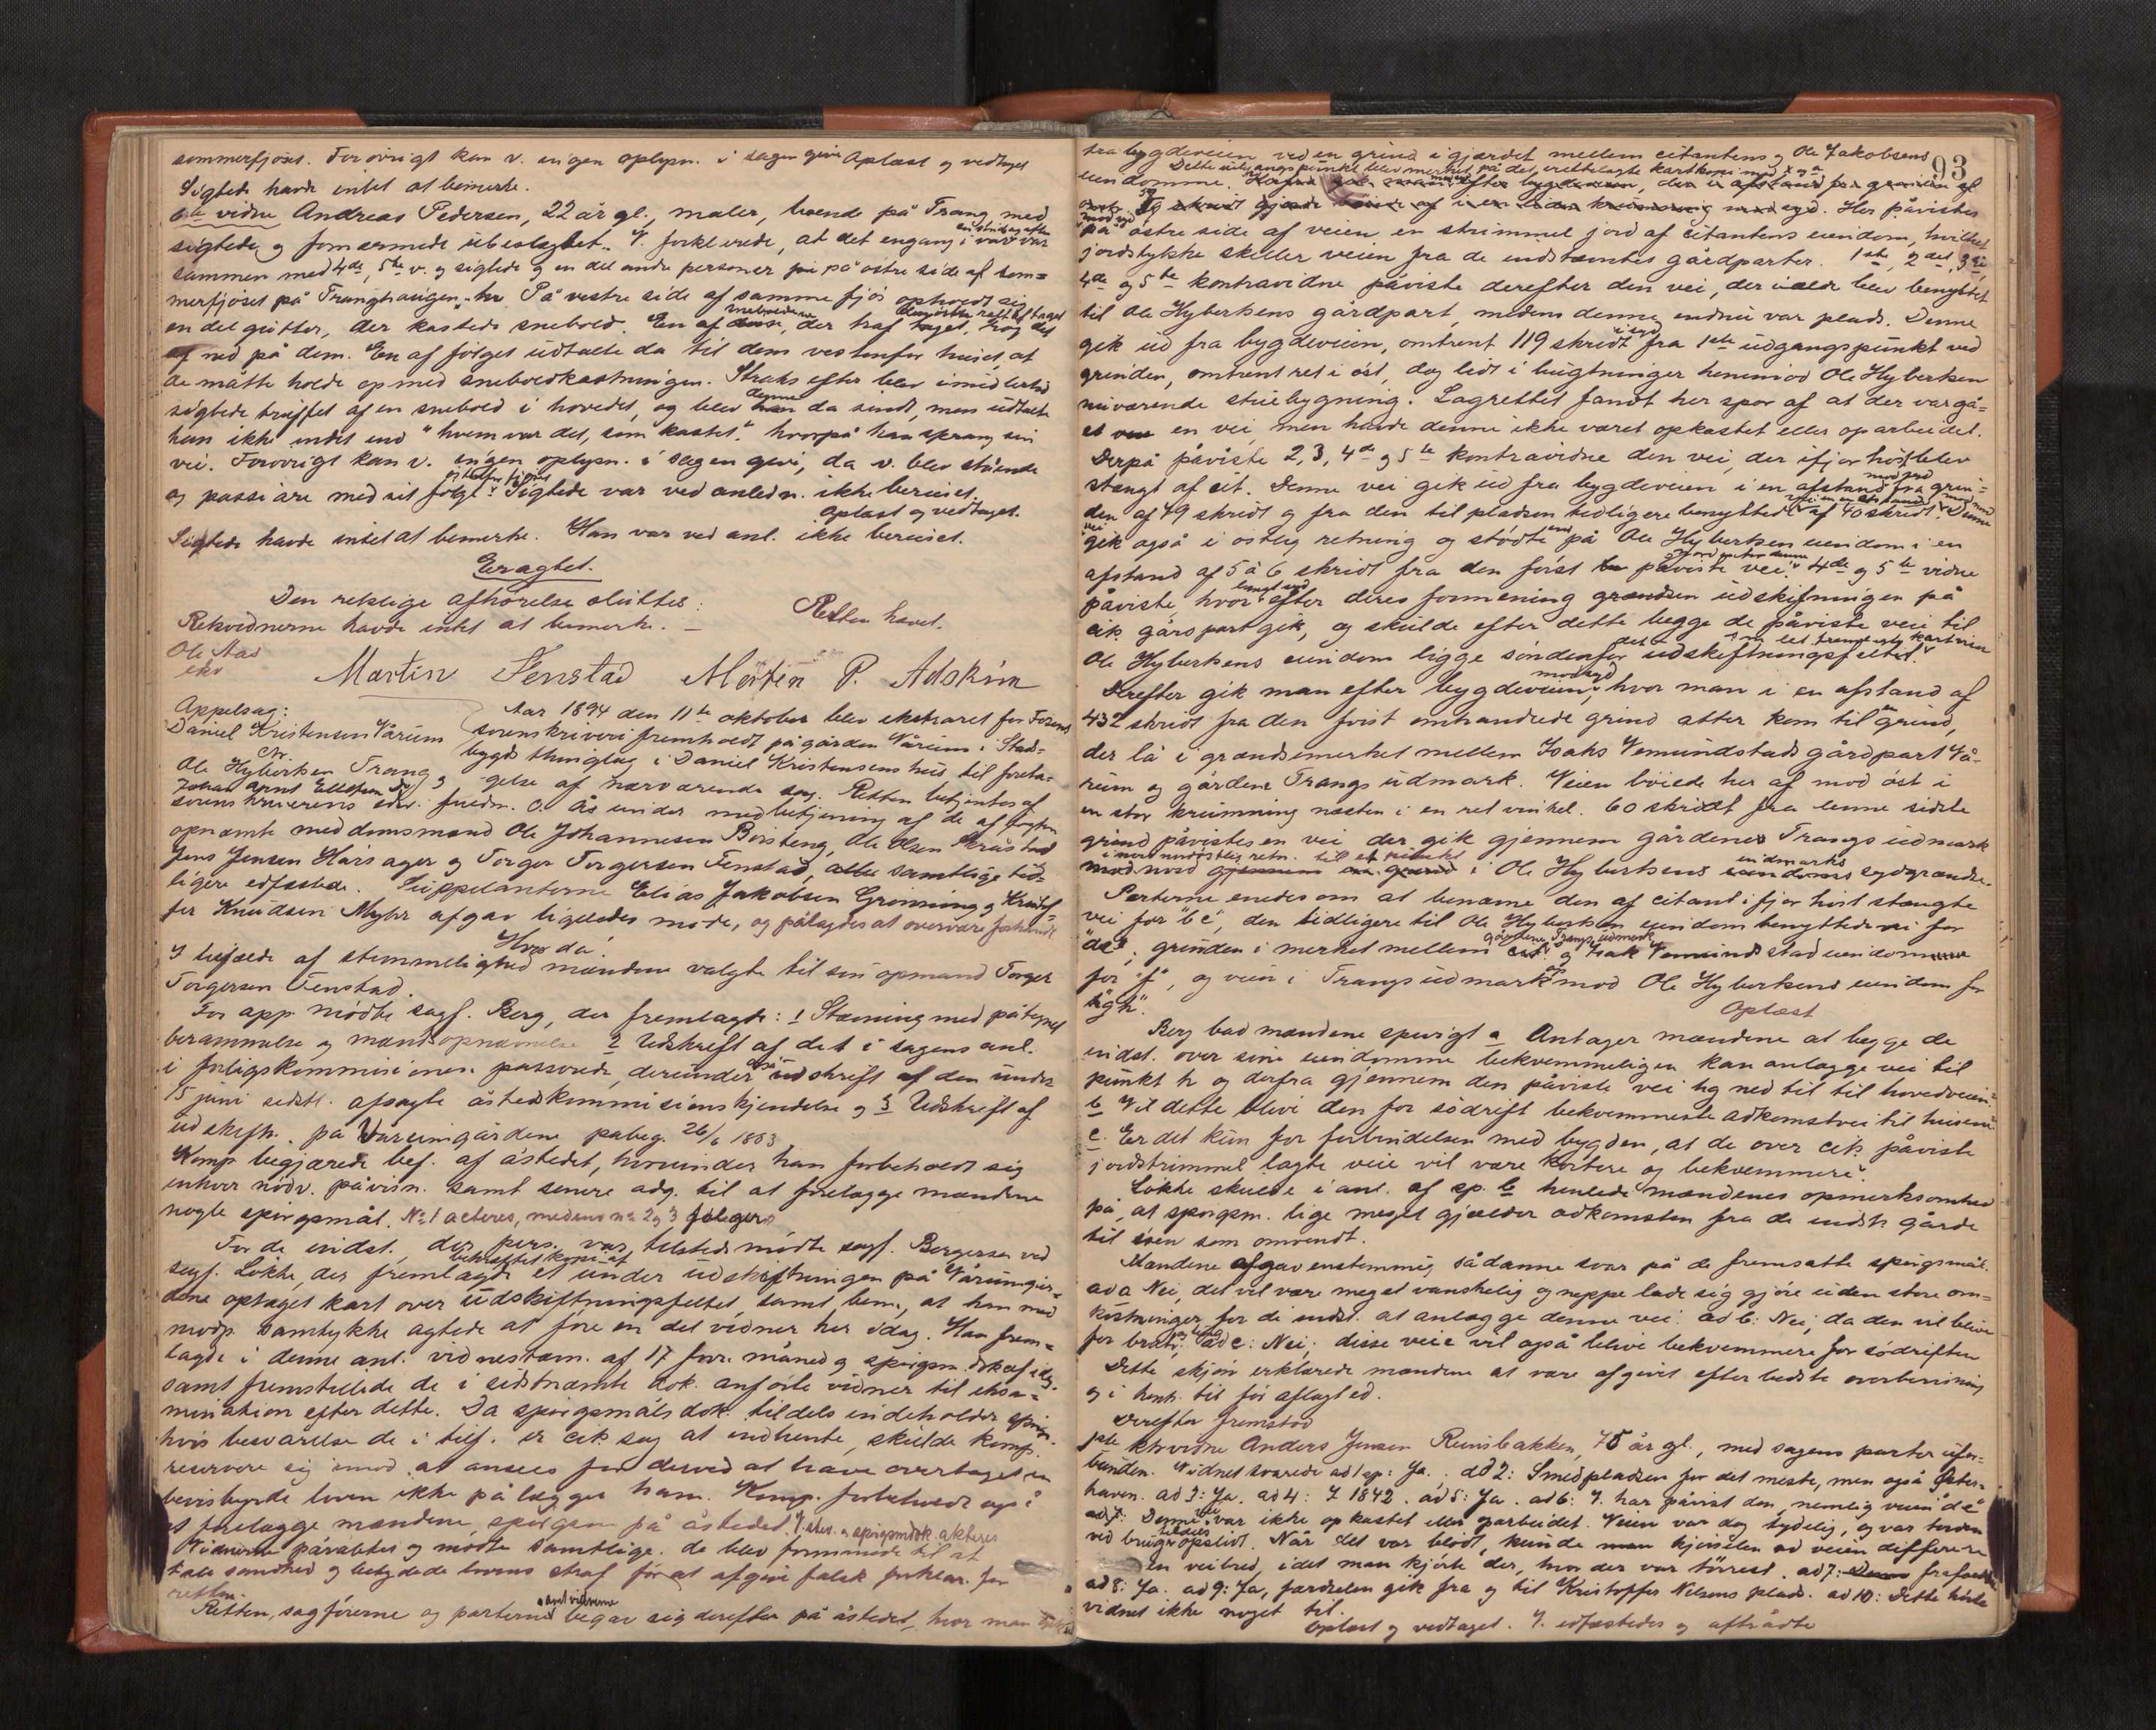 sommerfjöset. Forövrigt kan v. ingen oplysn. i sagen give Oplæst og vedtaget
Sigtede havde intet at bemerke.
6te vidne Andreas Pedersen, 22 år gl., maler, boende på Trang, med
sigtede og fornærmede ubeslægtet. V. forklarede, at det engang i vår var
sammen med 4de, 5te v. og sigtede og en del andre personer på östre side af som=
merfjöset på Tranghaugen. På vestre side af samme fjös opholdt sig
en del gutter, der kastede snebold. En af sneboldene, der traf taget, tog det
af ned på dem. En af fölget udtalte da til dem vestenfor huset, at
de måtte holde op med sneboldkastningen. Straks efter blev imidlertid
sigtede truffet af en snebold i hovedet, og blev denne da sindt, men udtalte
han ikke andet end "hvem var det, som kastet", hvorpå han sprang sin
vei. Forövrigt kan v. ingen oplysn. i sagen give, da v. blev stående
og passiare med sit fölge. Sigtede var ved anledn. ikke beruset.
Oplæst og vedtaget.
Sigtede havde intet at bemerke. Han var ved anl. ikke beruset.
Eragtet.
Den retslige afhörelse sluttes.
Retsvidnerne havde intet at bemerke. — Retten hævet.
Ole Aas
eko
Martin Fenstad Morten P. Adskin
Appelsag:
Daniel Kristensen Vårum
Ctr.
Ole Hybertsen Trang og
Johan Arnt Ellefsen
Aar 1894 den 11te oktober blev ekstraret for Fosens
sorenskriveri fremholdt på gården Vårum i Stad=
bygds thinglag i Daniel Kristensens hus til foreta=
gelse af nærværende sag. Retten betjentes af
sorenskriverens edsv. fuldm. O. Ås under medbetjening af de af fogden
opnævnte meddomsmænd Ole Johannesen Boisteng, Ole Olsen Skrustad
Jens Jensen Hårsager og Torger Torgersen Fenstad, alle samtlige tid=
ligere edfæstede. Suppleanterne Elias Jakobsen Grönning og Kristof=
fer Knudsen Myhr afgav ligeledes möde, og pålagdes at overvære forhandl.
Hvor da:
I tilfælde af stemmelighed mændene valgte til sin opmand Torger
Torgersen Fenstad.
For app. mödte sagf. Berg, der fremlagde: 1 Stævning med påtegnet
berammelse og mændsopnævnelse 2 Udskrift af det i sagens anl.
i forligskommissionen passerede, derunder også udskrift af den under
15 juni sidstl. afsagte åstedskommissionskjendelse og 3 Udskrift af
udskift. på Vårumgårdene påbeg. 26/6 1883
Komp begjærede bef. af åstedet, hvorunder han forbeholdt sig
enhver nödv. påvisn. samt senere adg. til at forelægge mændene
nogle spörgsmål. No 1 acteres, medens no 2 og 3 fölger
For de indst. der pers. var tilstede mödte sagf. Bergersen ved
sagf. Lökke, der fremlagde bekræftet kopi af et under udskiftningen på Vårumgår=
dene optaget kart over udskiftningsfeltet, samt bem., at han med
modp. samtykke agtede at före en del vidner her idag. Han frem=
lagde i denne anl. vidnestævn. af 17 forr. måned og spörgsm. dok. af idag
samt fremstillede de i sidstnævnte dok. anförte vidner til eksa=
mination efter dette. Da spörgsmålsdok. tildels indeholder spörgs.
hvis besvarelse de i tilf. er cit. sag at indhente, skulde komp.
reservere sig imod at ansees for derved at have overtaget en
bevisbyrde loven ikke pålægger ham. Komp. forbeholdt også
at forelægge mændene spörgsm. på åstedet. V. stev. og spörgsmdok. akteres
Vidnerne påråbtes og mödte samtlige. De blev formanede til at
tale sandhed og betydede lovens straf for at afgive falsk forklar. for
retten.
Retten, sagförerne og parterne samt vidnerne begav sig derefter på åstedet, hvor man
93
fra bygdeveien ved en grind i gjærdet mellem citantens og Ole Jakobsens
eiendomme. Dette udgangspunkt blev merket på det vedtagte kartkopi med
mod syd. Her påvistes
på östre side af veien en strimmel jord af citantens eiendom, hvilket
jordstykke skiller veien fra de indstævntes gårdparter. 1ste, 2det, 3die,
4de og 5te kontravidne påviste derefter den vei, der i ælde blev benyttet
til Ole Hybertsens gårdpart, medens denne endnu var plads. Denne
gik ud fra bygdeveien, omtrent 119 skridt i syd fra 1ste udgangspunkt ved
grinden, omtrent ret i öst, dog lidt i bugtninger henimod Ole Hybertsen
nuværende stuebygning. Lagrettet fandt her spor af at der var gå=
et en vei, men havde denne ikke været opkastet eller oparbeidet.
Derpå påviste 2, 3, 4de og 5te kontravidne den vei, der ifjor höst blev
stængt af cit. Denne vei gik ud fra bygdeveien i en afstand mod syd fra grin=
den af 79 skridt og fra den til pladsen tidligere benyttede vei en afstand af 40 skridt mod nord. Denne
vei gik også i östlig retning og stödte ind på Ole Hybertsens eiendom i en
afstand af 5 à 6 skridt fra den först påviste vei. nord under denne 4de og 5te vidne
påviste, hvor længst syd efter deres formening grændsen udskiftningen på
cits gårdpart gik, og skulde efter dette begge de påviste veie til
Ole Hybertsens eiendom ligge söndenfor det udskiftningsfeltet.
Derefter gik man efter bygdeveien, mod syd hvor man i en afstand af
432 skridt fra den först omhandlede grind atter kom til en grind,
der lå i grændsemerket mellem Isaks Vemundstads gårdpart Vå=
rum og gårdene Trangs udmark. Veien böiede her af mod öst i
en stor krumning næsten i en ret vinkel. 60 skridt fra denne sidste
grind påvistes en vei der gik gjennem gårdenes Trangs udmark
i nordnordöstlig retn. til et punkt i Ole Hybertsens eiendoms udmarks sydgrændse.
Parterne enedes om at benævne den af citant ifjor höst stængte
vei for "bc", den tidligere til Ole Hybertsen eiendom benyttede vei for
"de"; grinden i merket mellem gårdene Trangs udmark og Isak Vemundstad eiendom
for "f", og veien i Trangs udmark op mod Ole Hybertsens eiendom for
"gh".
Oplæst
Berg bad mændene spurgt a Antager mændene at begge de
indst. over sine eiendomme bekvemmeligen kan anlægge vei til
punkt h og derfra gjennem den påviste vei hg ned til til hovedveien:
b Vil dette blive den for södrift bekvemmeste adkomstvei til husene
c. Er det kun for forbindelsen med bygden, at de over cits påviste
jordstrimmel lagte veie vil være kortere og bekvemmere?
Lökke skulde i anl. af sp. b henlede mændenes opmerksomhed
på, at spörgsm. lige meget gjælder adkomsten fra de indst. gårde
til söen som omvendt.
Mændene afgav enstemmig sådanne svar på de fremsatte spörgsmål.
ad a Nei, det vil være meget vanskelig og neppe lade sig gjöre uden store om=
kostninger for de indst. at anlægge denne vei. ad b: Nei, da den vil blive
for brat. ad c: Nei; disse veie vil også blive bekvemmere for södriften
Dette skjön erklærede mændene at være afgivet efter bedste overbevisning
og i henh. til för aflagt ed.
Derefter fremstod
1ste ktrvidne Anders Jensen Reinsbakken, 75 år gl., med sagens parter ufor=
bunden. Vidnet svarede ad 1 sp: Ja. ad 2: Smedpladsen for det meste, men også Peter=
haven. ad 3: Ja. ad 4: I 1842. ad 5: Ja. ad 6: V. har påvist den, nemlig veien "de"
ad 7: Denne vei var ikke opkastet eller oparbeidet. Veien var dog tydelig, og var
ved brug opslidt. Når det var blödt, kunde kjörselen ad veien differere
en veibred, idet man kjörte der, hvor der var törrest. ad 7:
ad 8: Ja. ad 9: Ja, færdselen gik fra og til Kristoffer Nilsens plads. ad 10: Dette hörte
vidnet ikke noget til.
Oplæst og vedtaget. V. edfæstedes og aftrådte